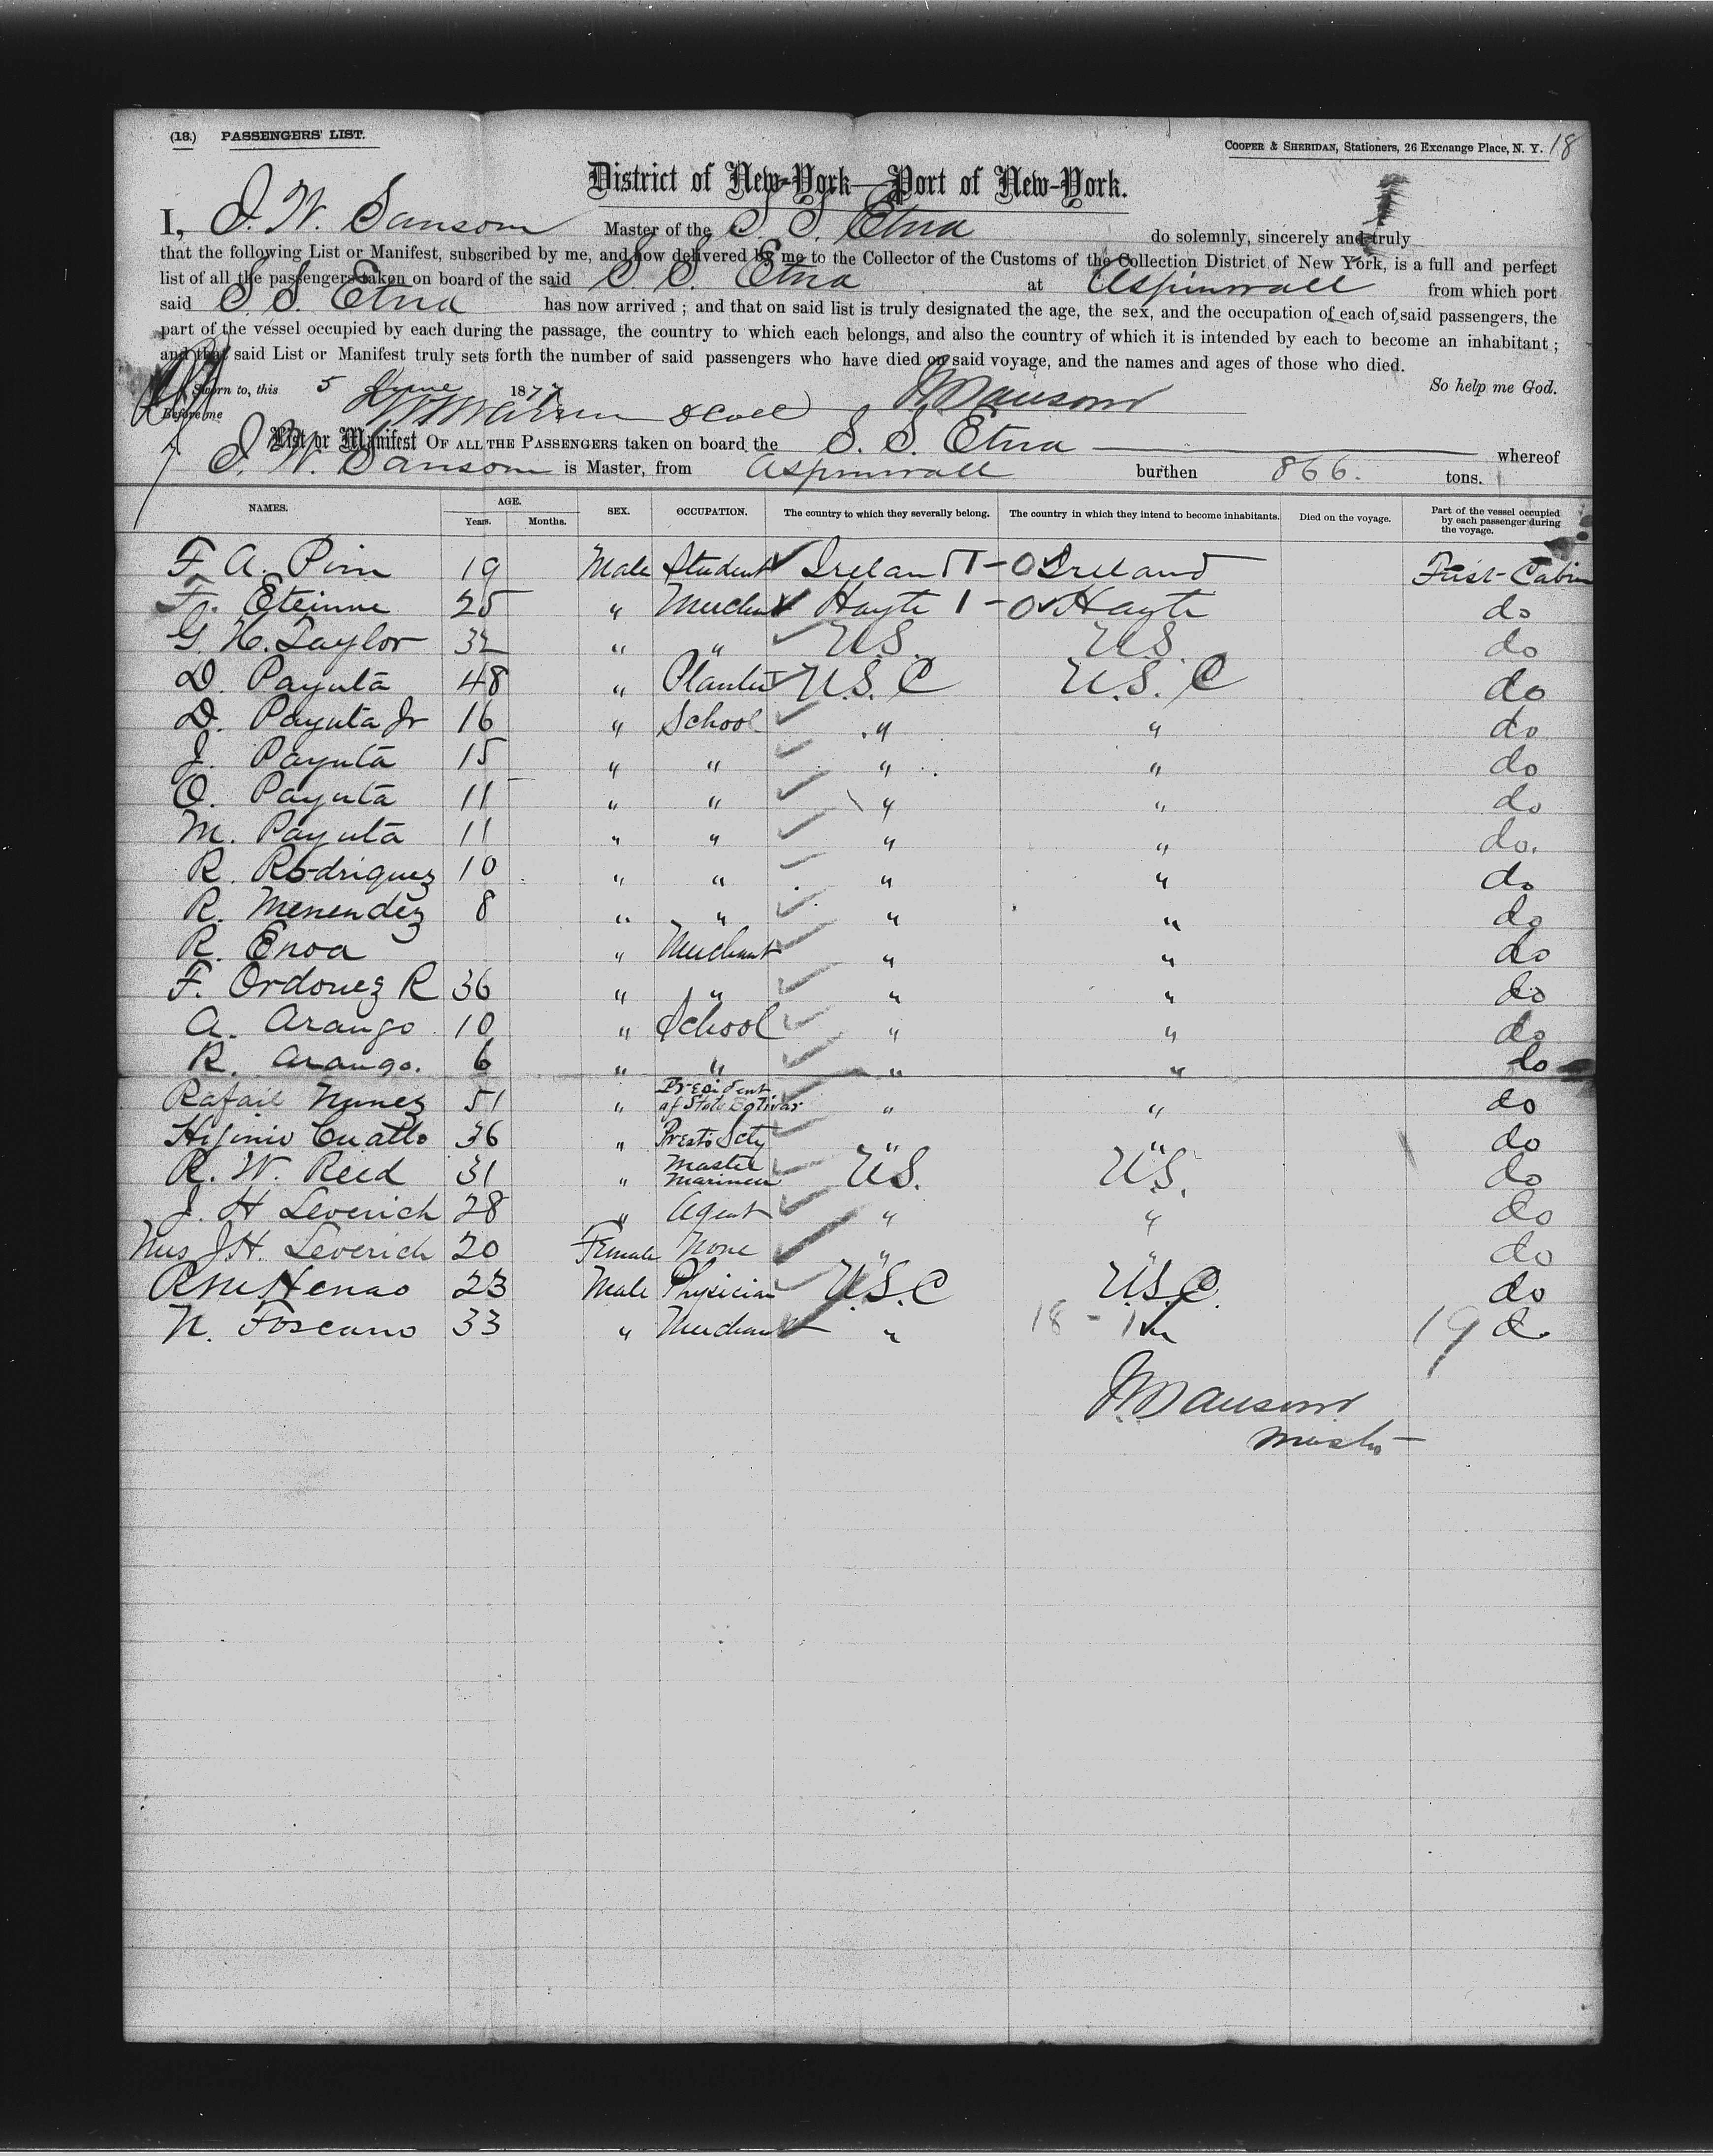 (18.) PASSENGERS' LIST.
COOPER & SHERIDAN, Stationers, 26 Exchange Place, N. Y. 18
District of New-York—Port of New-York.
I, J. W. Sansom Master of the S. S. Etna do solemnly, sincerely and truly
that the following List or Manifest, subscribed by me, and now delivered by me to the Collector of the Customs of the Collection District of New York, is a full and perfect
list of all the passengers taken on board of the said S. S. Etna at Aspinwall from which port
said S. S. Etna has now arrived ; and that on said list is truly designated the age, the sex, and the occupation of each of said passengers, the
part of the vessel occupied by each during the passage, the country to which each belongs, and also the country of which it is intended by each to become an inhabitant ;
and that said List or Manifest truly sets forth the number of said passengers who have died on said voyage, and the names and ages of those who died.
So help me God.
Sworn to, this 5 June 1877 J W Sansom
Before me
List or Manifest OF ALL THE PASSENGERS taken on board the S. S. Etna whereof
J. W. Sansom is Master, from Aspinwall burthen 866. tons.
NAMES. AGE. Years. Months. SEX. OCCUPATION. The country to which they severally belong. The country in which they intend to become inhabitants. Died on the voyage. Part of the vessel occupied by each passenger during the voyage.
F. A. Pim 19 Male Student Ireland 1-0 Ireland First-Cabin
F. Eteinne 25 " Merchant Hayti 1-0 Hayti do
G. H. Taylor 32 " " U.S. U.S. do
D. Payuta 48 " Planter U.S. C U.S. C do
D. Payuta Jr 16 " School " " do
J. Payuta 15 " " " " do
O. Payuta 11 " " " " do
M. Payuta 11 " " " " do.
R. Rodriguez 10 " " " " do
R. Menendez 8 " " " " do
R. Enoa " Merchant " " do
F. Ordonez R 36 " " " " do
A. Arango 10 " School " " do
R. Arango. 6 " " " " do
Rafail Nunez 51 " President of State Bolivar " " do
Hijinio Cualto 36 " Presto Scty " " do
R. W. Reed 31 " Master Mariner U.S. U.S. do
J. H Leverich 28 " Agent " " do
Mrs J.H. Leverich 20 Female None " " do
R M Henao 23 Male Physician U.S.C U.S.C. do
N. Toscano 33 " Merchant " 18 - 1 " 19 do
J W Sansom
Master